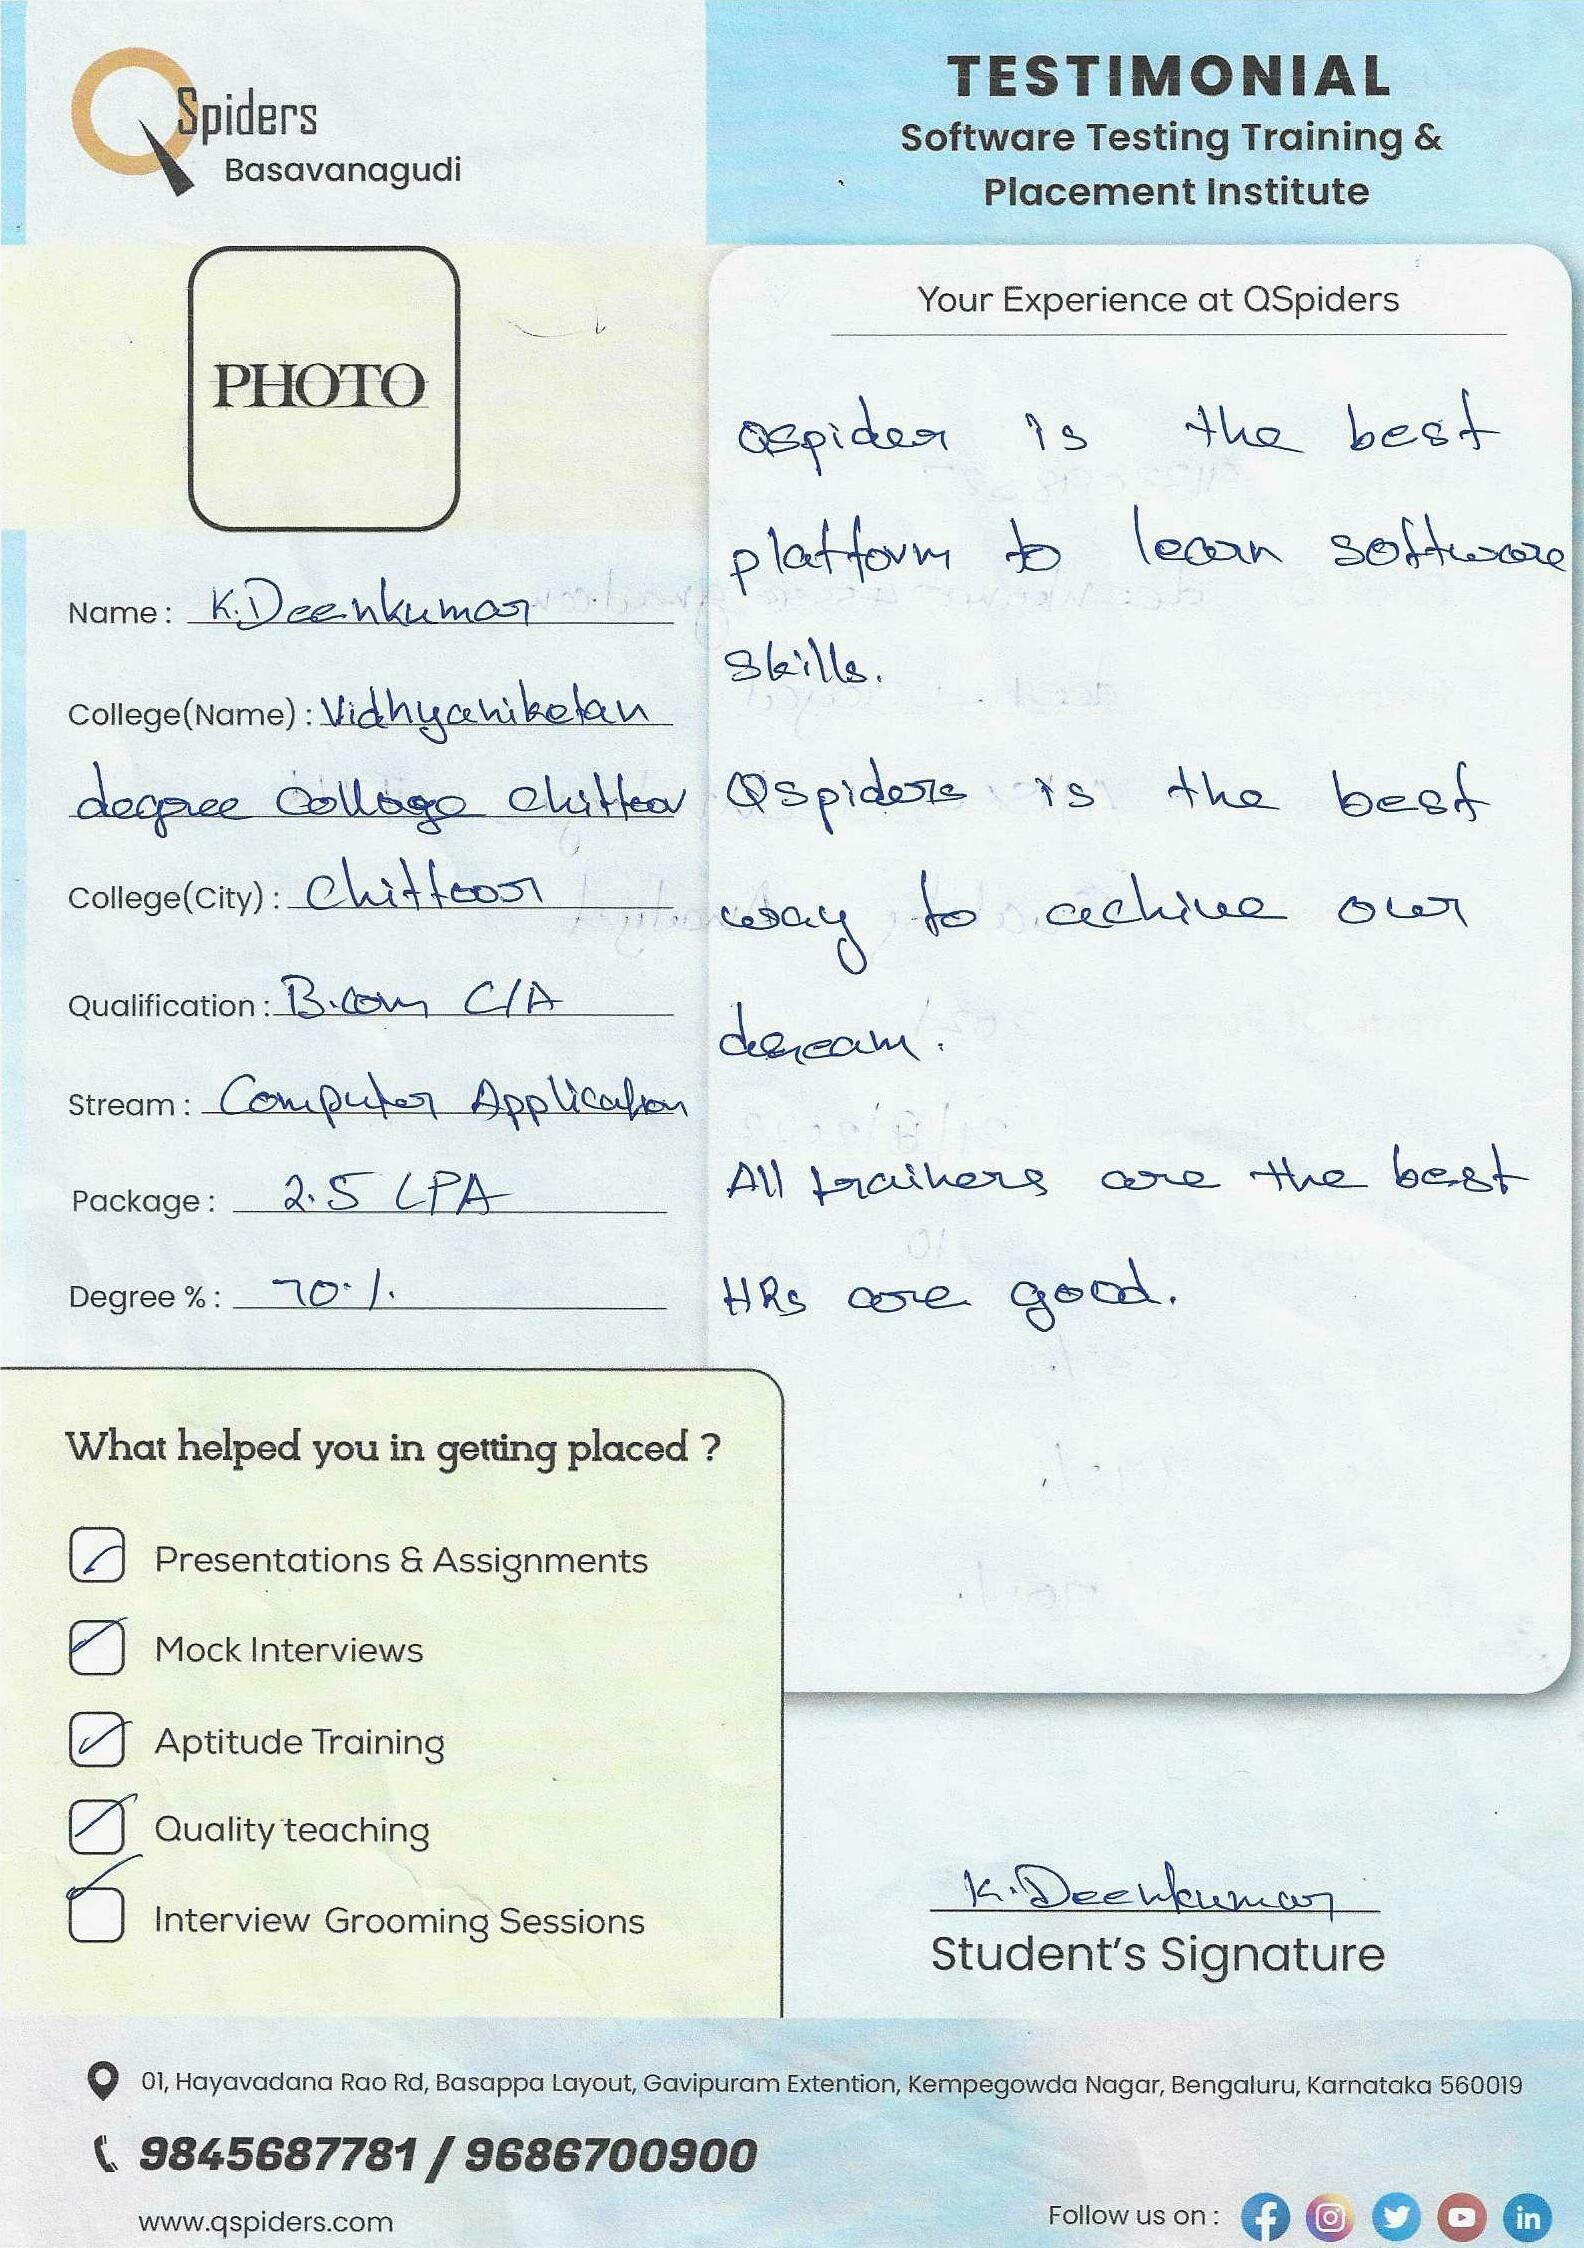 QSpiders
Basavanagudi
TESTIMONIAL
Software Testing Training &
Placement Institute
PHOTO
Name : K.Deenkumar
College(Name) : Vidhyaniketan
degree college chittoor
College(City) : Chittoor
Qualification : B.com C/A
Stream : Computer Application
Package : 2.5 LPA
Degree % : 70%
Your Experience at QSpiders
QSpider is the best
platform to learn software
skills.
QSpiders is the best
way to achive our
dream.
All trainers are the best
HRs are good.
What helped you in getting placed ?
Presentations & Assignments
Mock Interviews
Aptitude Training
Quality teaching
Interview Grooming Sessions
K.Deenkumar
Student's Signature
01, Hayavadana Rao Rd, Basappa Layout, Gavipuram Extention, Kempegowda Nagar, Bengaluru, Karnataka 560019
9845687781 / 9686700900
www.qspiders.com
Follow us on :